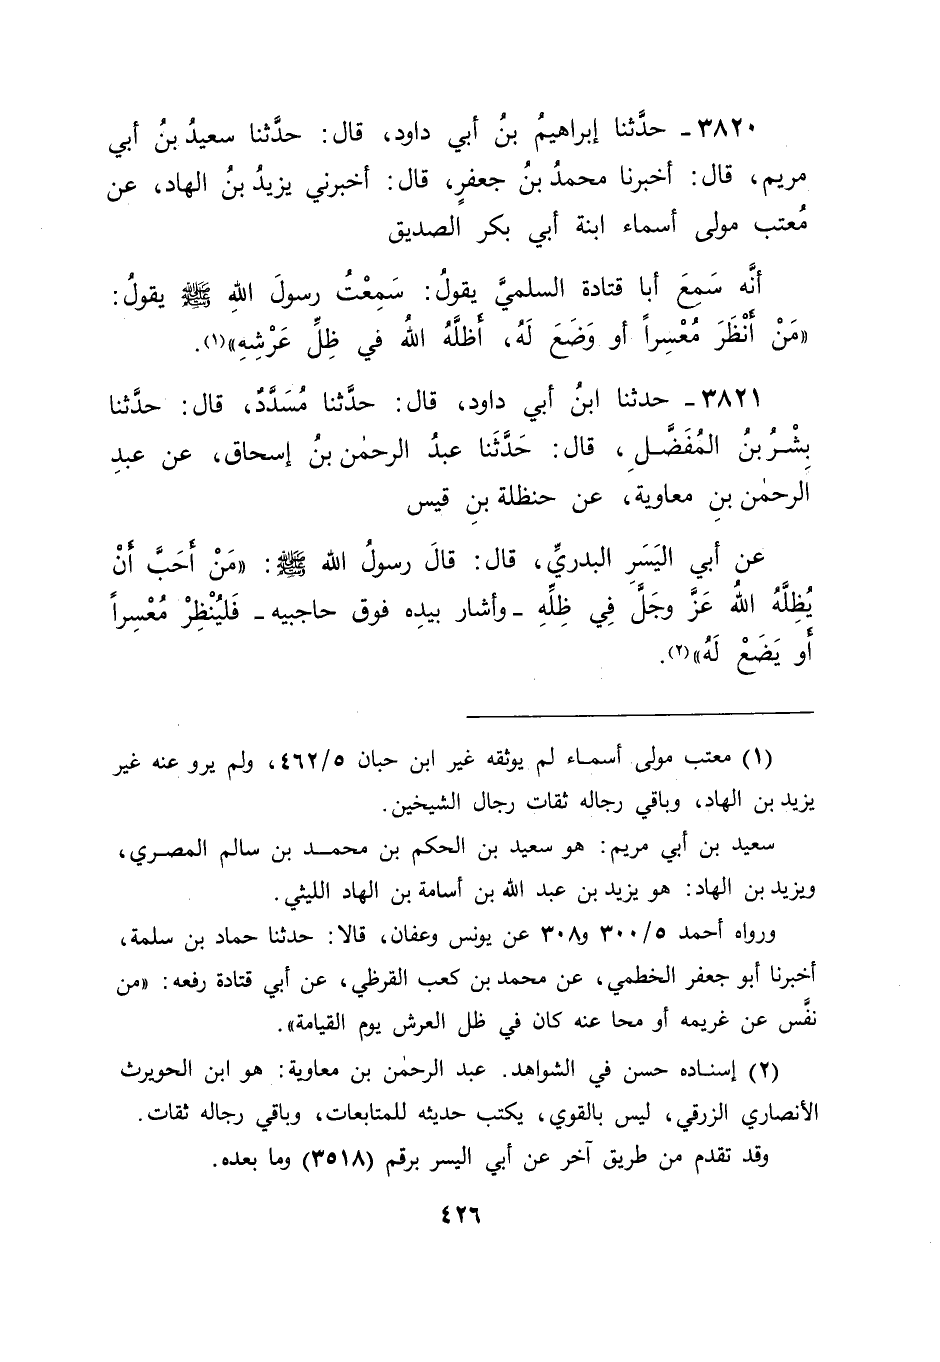 ٣٨٢٠ ـ حدَّثنا إبراهيمُ بنُ أبي داود، قال: حدَّثنا سعيدُ بنُ أبي
مريم، قال: أخبرنا محمدُ بنُ جعفرٍ، قال: أخبرني يزيدُ بنُ الهاد، عن
مُعتب مولى أسماء ابنة أبي بكر الصديق
أنَّه سَمِعَ أبا قتادة السلميَّ يقولُ: سَمِعْتُ رسولَ اللهِ ﷺ يقولُ:
«مَنْ أَنْظَرَ مُعْسِراً أو وَضَعَ لَهُ، أَظلَّهُ اللهُ في ظِلِّ عَرْشِهِ»(١).
٣٨٢١ ـ حدثنا ابنُ أبي داود، قال: حدَّثنا مُسَدَّدٌ، قال: حدَّثنا
بِشْرُ بنُ المُفَضَّلِ، قال: حَدَّثَنا عبدُ الرحمٰن بنُ إسحاق، عن عبدِ
الرحمٰن بنِ معاوية، عن حنظلة بنِ قيس
عن أبي اليَسَرِ البدريِّ، قال: قالَ رسولُ الله ﷺ: «مَنْ أَحَبَّ أَنْ
يُظِلَّهُ اللهُ عَزَّ وجَلَّ فِي ظِلِّهِ ـ وأشار بيدِه فوق حاجبيه ـ فَليُنْظِرْ مُعْسِراً
أَو يَضَعْ لَهُ»(٢).
(١) معتب مولى أسماء لم يوثقه غير ابن حبان ٤٦٢/٥، ولم يرو عنه غير
يزيد بن الهاد، وباقي رجاله ثقات رجال الشيخين.
سعيد بن أبي مريم: هو سعيد بن الحكم بن محمد بن سالم المصري،
ويزيد بن الهاد: هو يزيد بن عبد الله بن أسامة بن الهاد الليثي.
ورواه أحمد ٣٠٠/٥ و٣٠٨ عن يونس وعفان، قالا: حدثنا حماد بن سلمة،
أخبرنا أبو جعفر الخطمي، عن محمد بن كعب القرظي، عن أبي قتادة رفعه: «من
نفَّس عن غريمه أو محا عنه كان في ظل العرش يوم القيامة».
(٢) إسناده حسن في الشواهد. عبد الرحمٰن بن معاوية: هو ابن الحويرث
الأنصاري الزرقي، ليس بالقوي، يكتب حديثه للمتابعات، وباقي رجاله ثقات.
وقد تقدم من طريق آخر عن أبي اليسر برقم (٣٥١٨) وما بعده.
٤٢٦